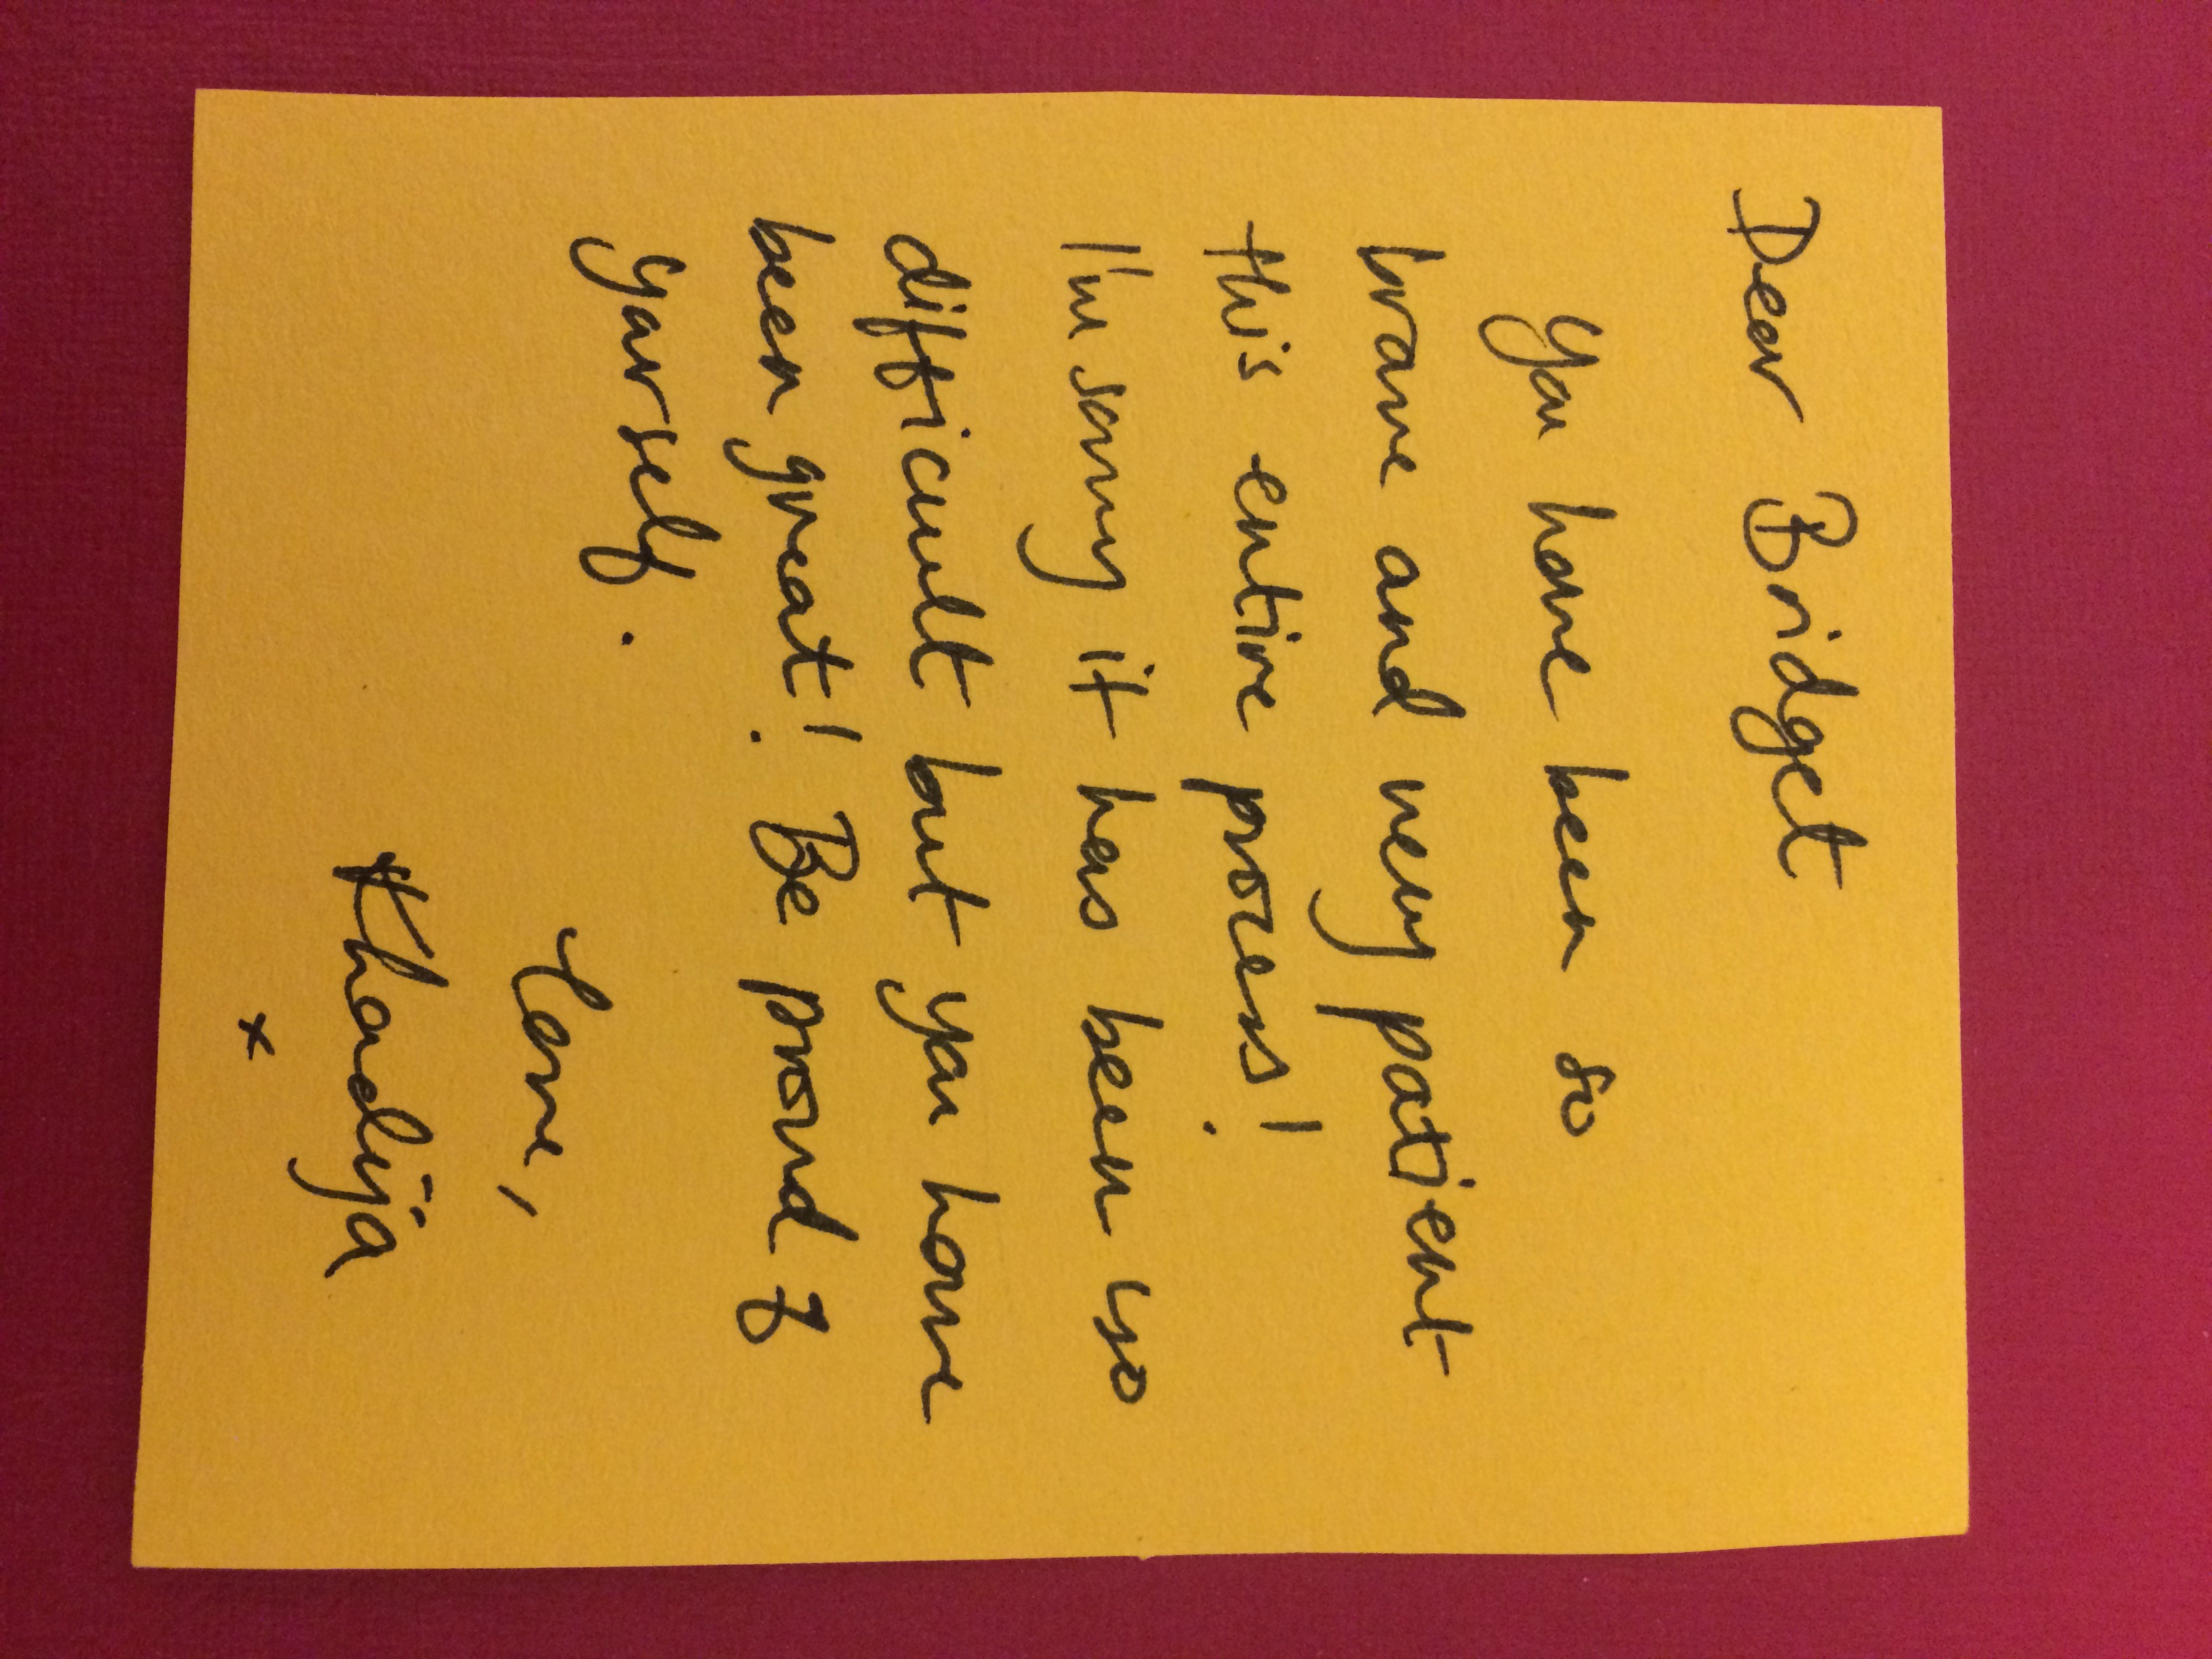 Dear Bridget
You have been so
brave and very patient
this entire process!
I'm sorry it has been so
difficult but you have
been great! Be proud of
yourself.
Love,
Khadija
x